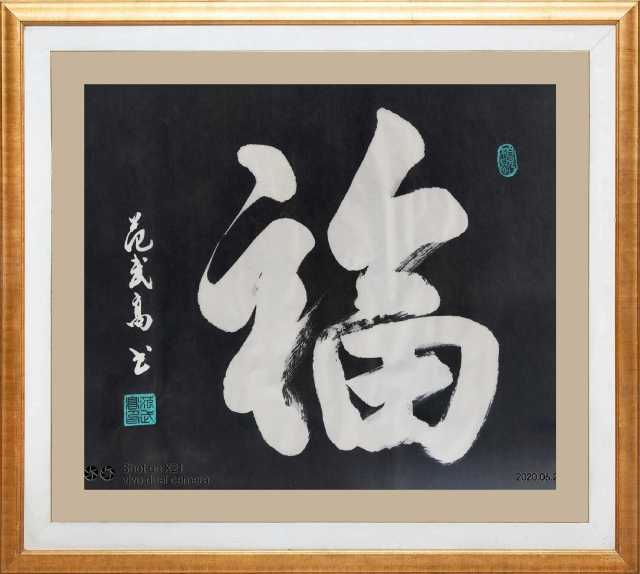 福
范武高书
Shot on X21
vivo dual camera
2020.06.2